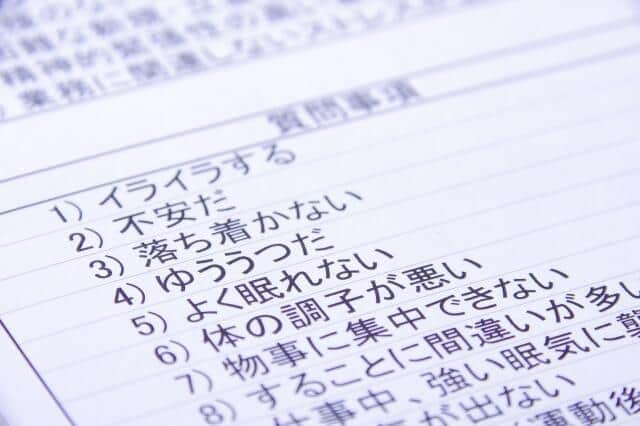 精神的緊張
業務に関連しないストレス
質問事項
1) イライラする
2) 不安だ
3) 落ち着かない
4) ゆううつだ
5) よく眠れない
6) 体の調子が悪い
7) 物事に集中できない
8) することに間違いが多い
仕事中、強い眠気に襲
が出ない
運動後